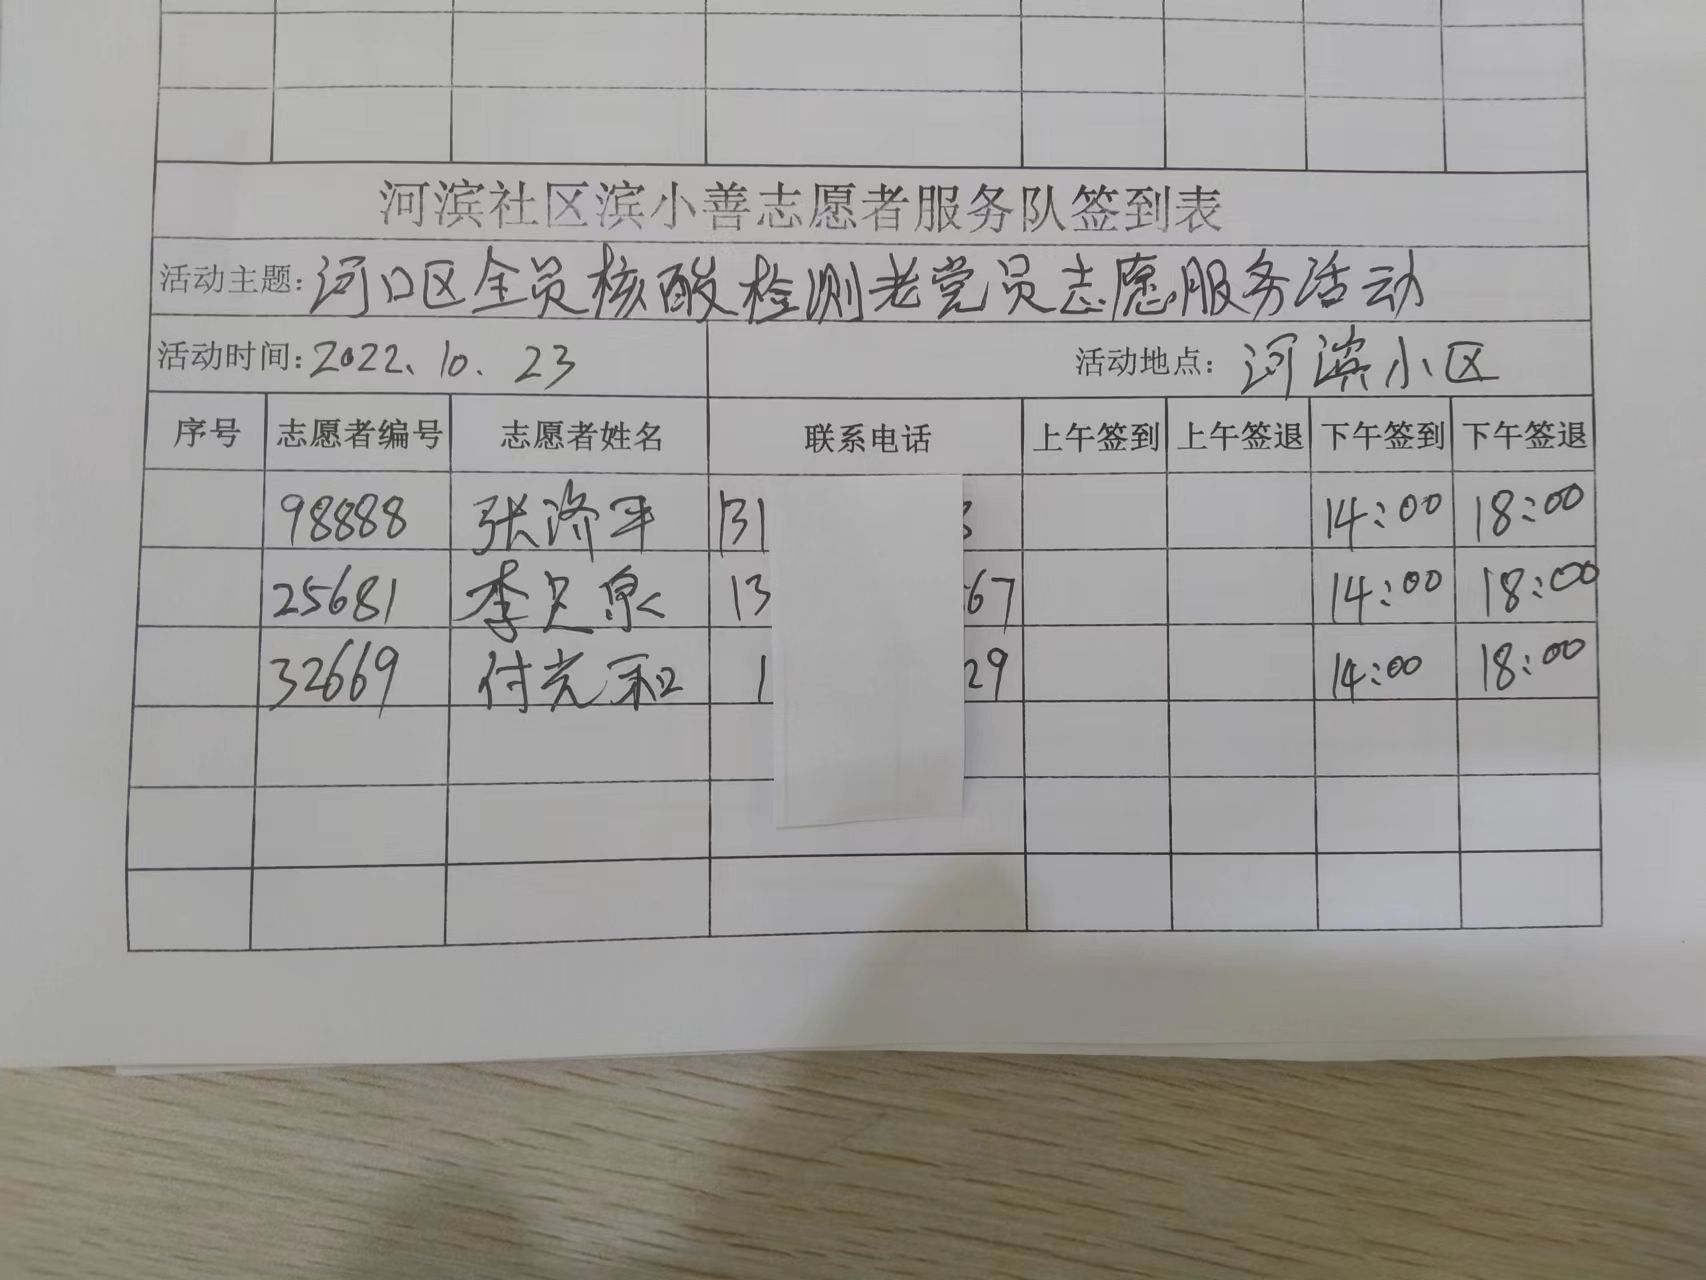 河滨社区滨小善志愿者服务队签到表
活动主题：河口区全员核酸检测老党员志愿服务活动
活动时间：2022.10.23 活动地点：河滨小区
序号 志愿者编号 志愿者姓名 联系电话 上午签到 上午签退 下午签到 下午签退
98888 张济平 131 14:00 18:00
25681 李 泉 13 67 14:00 18:00
32669 付光和 1 29 14:00 18:00